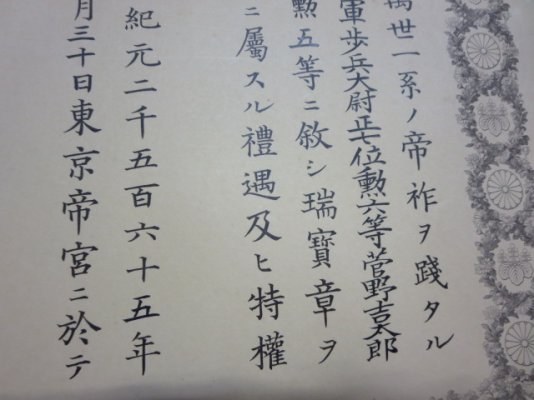 萬世一系ノ帝祚ヲ踐タル
軍歩兵大尉正七位勲六等菅野吉太郎
勲五等ニ敘シ瑞寶章ヲ
ニ屬スル禮遇及ヒ特權
紀元二千五百六十五年
月三十日東京帝宮ニ於テ